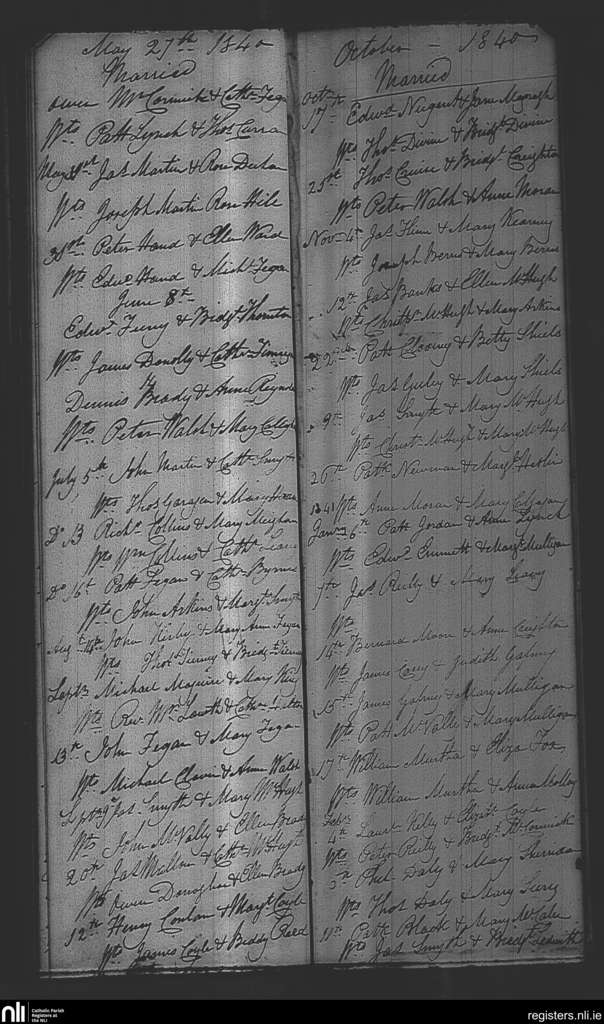 May 27th 1840
Married
Owen McCormick & Cathn Fega
Wts Patt Lynch & Thos Curra
May 31st Jas Martin & Rose
Wts Joseph Martin Rose Hill
31st Peter Hand & Ellen Ward
Wts Edwd Hand & Michl Fegan
June 8th
Edwd & Bidgt Thornton
Wts James Donolly & Cathn
Dennis Brady & Anne Reynol
Wts Peter Walsh & Mary
July 5th John Martin & Cathn Smyth
Wts Thos & Mary
Do 13 Richd Collins & Mary Meighan
Wts Wm Collins & Cathn
Do 16th Patt Fegan & Cathn Byrne
Wts John Askins & Margt Smyth
Augt John & Mary Ann Fegan
Wts Thos Tierny & Bridgt Tierny
Septr Michael Maguire & Mary King
Wts Revd Mr & Cathn
13th John Fegan & Mary Fegan
Wts Michael & Anne Walsh
Septr Jas Smyth & Mary McHugh
Wts John McNally & Ellen Brady
20th Jas & Cathn McHugh
Wts Owen Donoghoe & Ellen Brady
12th Henry Conlon & Margt Coyle
Wts James Coyle & Biddy Reed
October - 1840
Married
Octr
17th Edwd Nugent & Jane
Wts Thos Divine & Bridgt Divine
25th Thos & Bridgt Creighton
Wts Peter Walsh & Anne Moran
Nov 4th Jas & Mary Kearney
Wts Joseph Berns & Mary Berns
12th Jas Banks & Ellen McHugh
Wts Christr McHugh & Mary Askins
22nd Patt Clooney & Betty Shiels
Wts Jas & Mary Shiels
9th Jas Smyth & Mary McHugh
Wts Christr McHugh & Mary McHugh
26th Patt Newman & Margt
1841 Wts Anne Moran & Mary
Janry 6th Patt Jordan & Ann Lynch
Wts Edwd Emmett & Margt Mulligan
7th Jas Reily & Mary Leavy
Wts
14th Bernard Moore & Anne Creighton
Wts James & Judith
15th James & Mary Mulligan
Wts Patt McNally & Mary Mulligan
17th William Murtha & Eliza Fox
Wts William Murtha & Anne
Febry
4th Laurn Kelly & Elizth
Wts Peter Reily & Bridgt McCormick
5th Phil Daly & Mary Sheridan
Wts Thos Daly & Mary
11th Patt Black & Mary McCabe
Wts Jas Smyth & Bridgt Ledwith
nli
Catholic Parish
Registers at
the NLI
registers.nli.ie